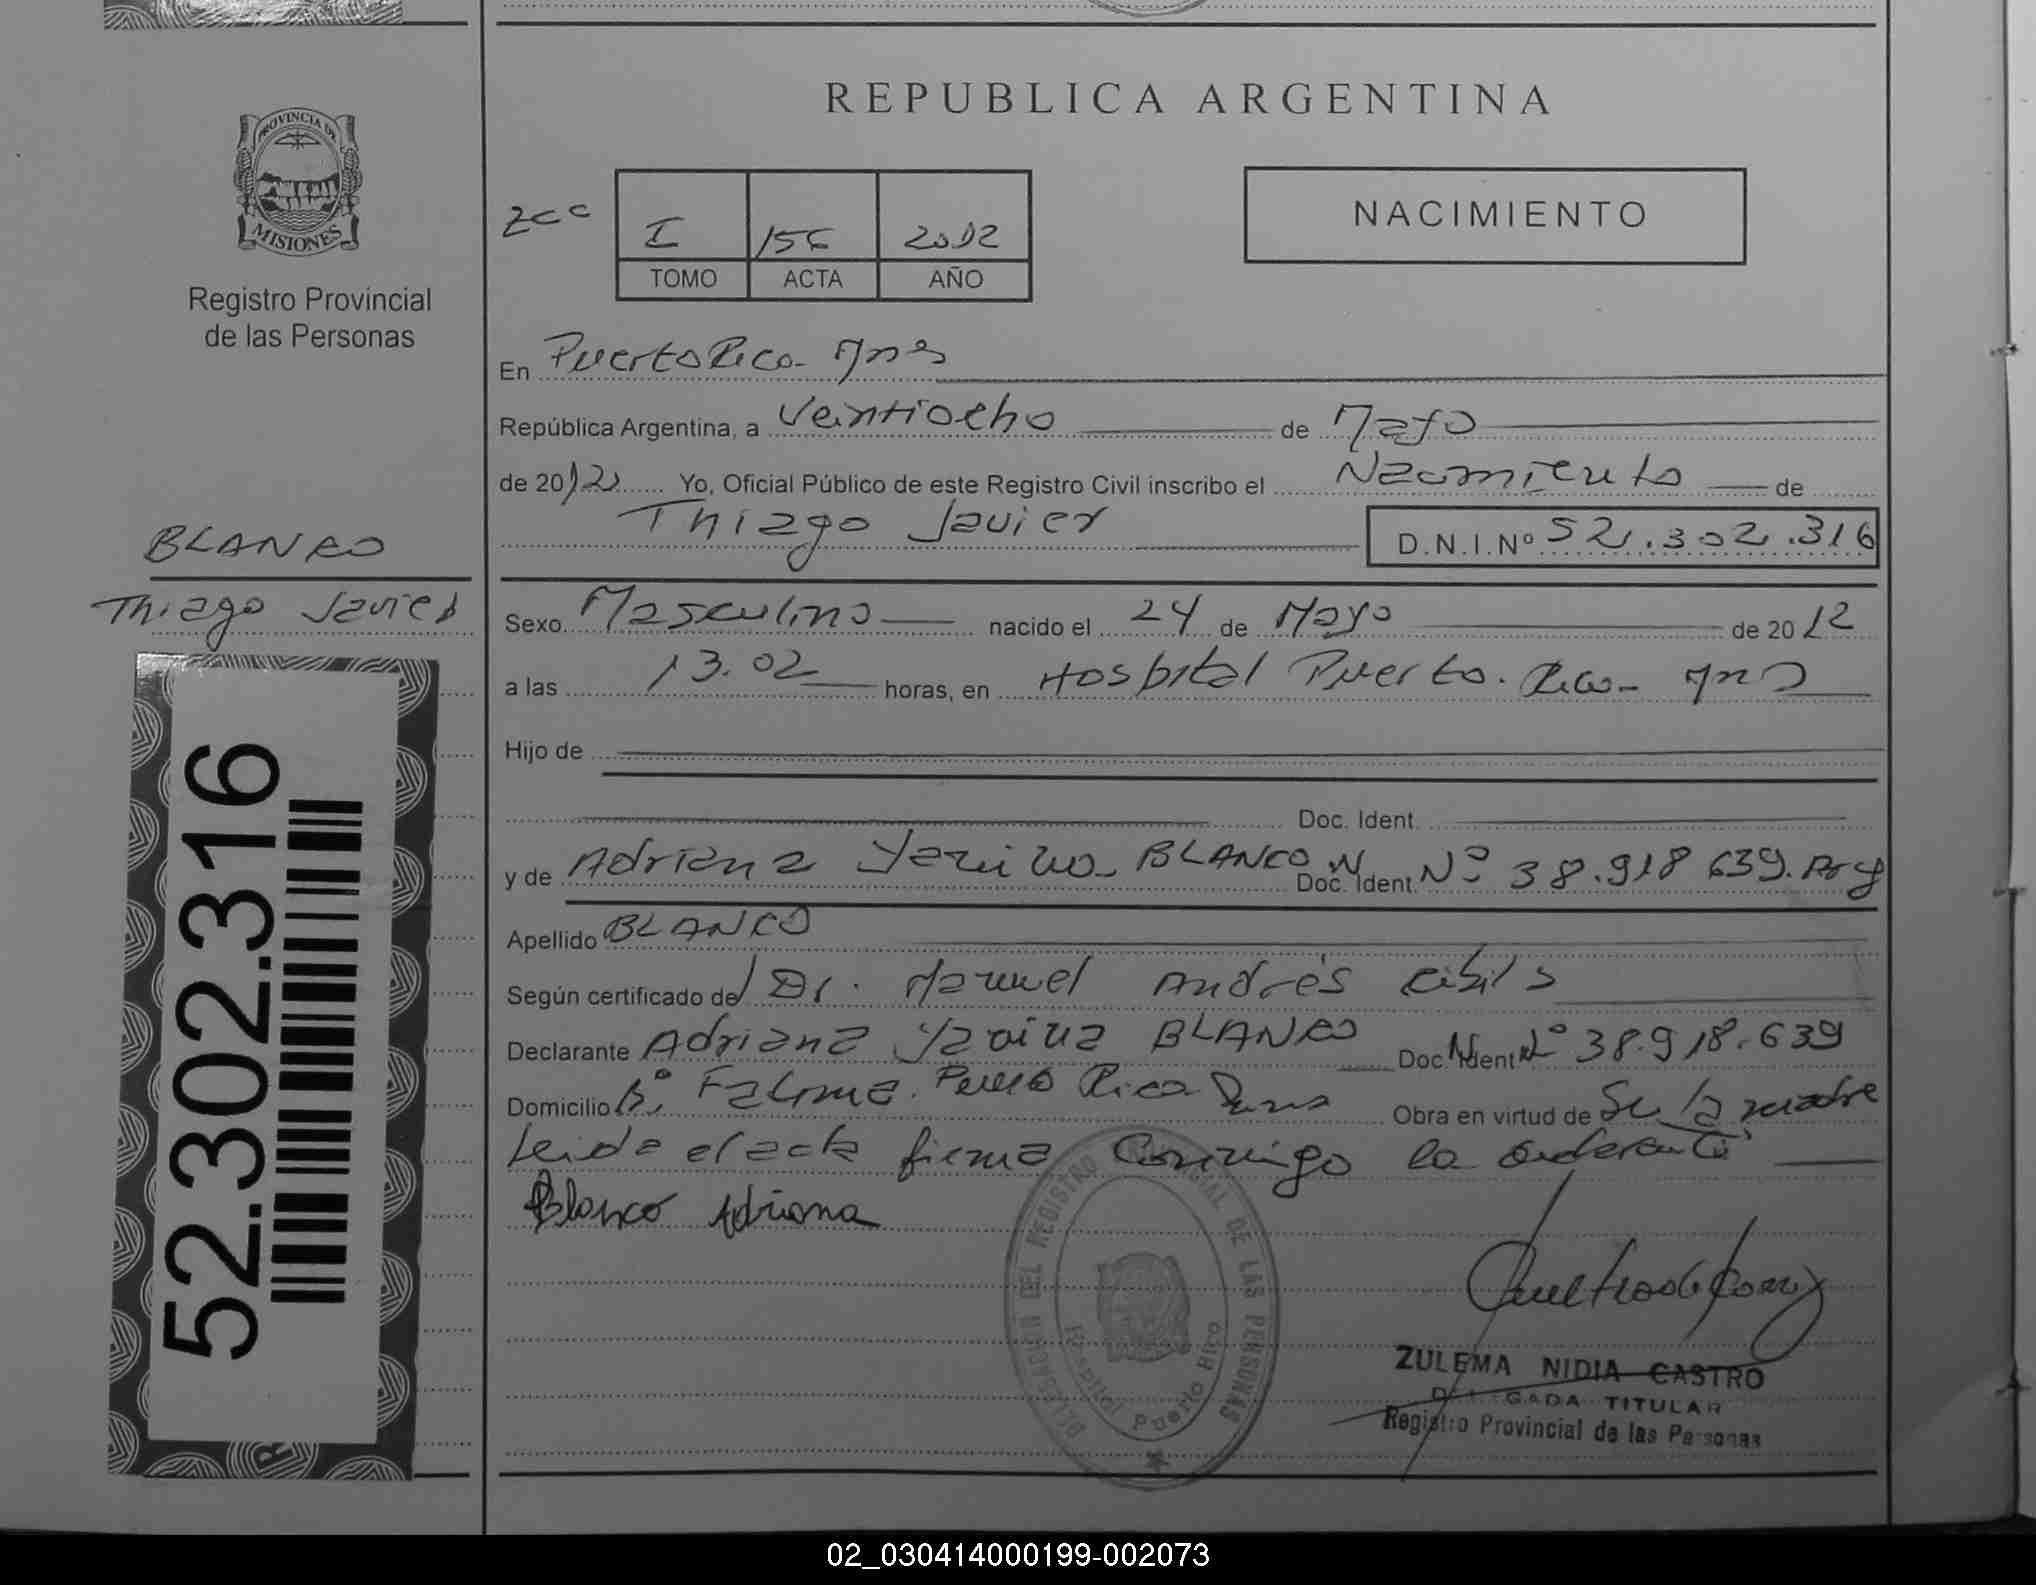 REPUBLICA ARGENTINA
PROVINCIA DE
MISIONES
Registro Provincial
de las Personas
I 156 2012
TOMO ACTA AÑO
NACIMIENTO
En Puerto Rico - Mnes
República Argentina, a Veintiocho de Mayo
de 2012 Yo, Oficial Público de este Registro Civil inscribo el Nacimiento de
Thiago Javier D.N.I.Nº 52.302.316
BLANCO
Thiago Javier
Sexo Masculino nacido el 24 de Mayo de 2012
a las 13.02 horas, en Hospital Puerto Rico - Mns
Hijo de
Doc. Ident.
y de Adriana BLANCO Doc. Ident. Nº 38.918.639. Arg
Apellido BLANCO
Según certificado del Dr. Manuel Andrés
Declarante Adriana BLANCO Doc. Ident. Nº 38.918.639
Domicilio Bº Fatima. Puerto Rico Obra en virtud de Ser la madre
Leida el acta firma Conmigo la
Blanco Adriana
DELEGACION DEL REGISTRO PROVINCIAL DE LAS PERSONAS
Hospital Puerto Rico
ZULEMA NIDIA CASTRO
DELEGADA TITULAR
Registro Provincial de las Personas
52.302.316
02_030414000199-002073